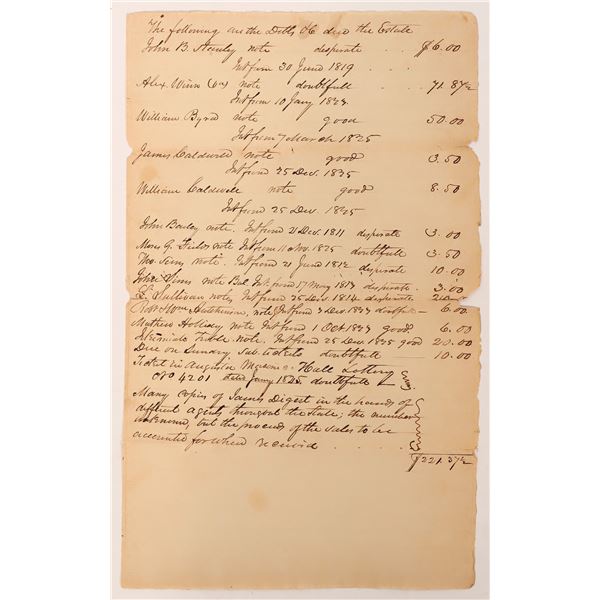 The following are the Debts &c due the Estate
John B. Stanly note desperate . . $6.00
Int from 30 June 1819 . . .
Alex. Winn note doubtfull . . 71.87½
Int from 10 Jany
William Byrd note good 50.00
Int from 7 March 1825
James Caldwell note good 3.50
Int from 25 Dec. 1825
William Caldwell note good 8.50
Int from 25 Dec. 1825
John Bailey note. Int from 21 Dec. 1811 desperate 3.00
G. Fields note Int from 11 Nov. 1825 doubtfull 3.50
Tho. Sims note. Int from 21 June 1812 desperate 10.00
John Sims note Bal. Int from 17 May 1817 desperate. 3.00
Sullivan note, Int from 25 Dec. 1814. desperate
Robt & Wm Hutchinson, note, Int from 3 Dec. doubtful - 6.00
Mathew Holliday note Int from 1 Oct good 6.00
note. Int from 25 Dec. 1825 good 20.00
Due on Sundry Sub. tickets doubtfull - 10.00
Ticket in Augusta Masonic Hall Lottery
No 4201 dated Jany 1825. doubtfull
Many copies of Sams Digest in the hands of
different agents throughout the State; the number
unknown, but the proceeds of the sales to be
accounted for when received . . . .
$221.37½